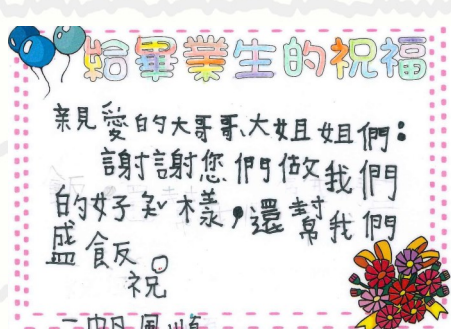 給畢業生的祝福
親愛的大哥哥、大姐姐們:
謝謝您們做我們
的好知樣,還幫我們
盛飯。
祝
一帆風順